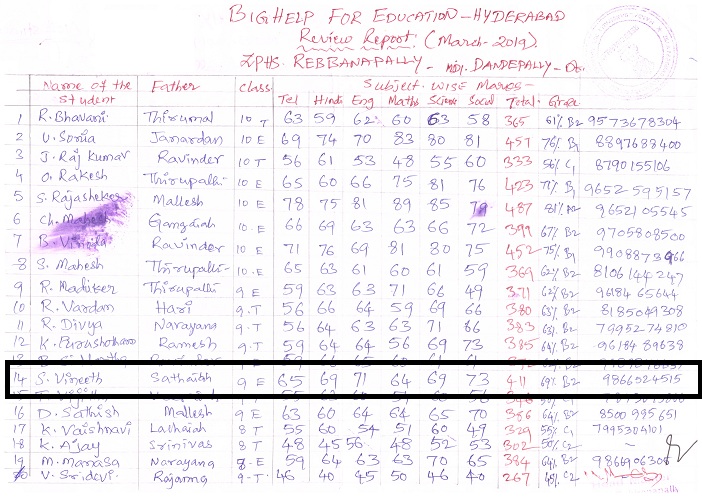 BIGHELP FOR EDUCATION - HYDERABAD
Review Report (March-2019)
ZPHS. REBBANAPALLY - Mdl. DANDEPALLY - Dt.
Subject wise Marks -
Name of the Student Father class Tel Hindi Eng Maths Science Social Total Grade
1 R. Bhavani Thirumal 10 T 63 59 62 60 63 58 365 61% B2 9573678304
2 U. Sonia Janardan 10 E 69 74 70 83 80 81 457 76% B1 8897688400
3 J. Raj Kumar Ravinder 10 T 56 61 53 48 55 60 333 56% C1 8790155106
4 O. Rakesh Thirupathi 10 E 65 60 66 75 81 76 423 71% B1 9652595157
5 S. Rajasheker Mallesh 10 E 78 75 81 89 85 79 487 81% A2 9652105545
6 Ch. Mahesh Gangaiah 10 E 66 69 63 63 66 72 399 67% B2 9705808500
7 B. Ravinder 10 E 71 76 69 81 80 75 452 75% B1 9908873966
8 S. Mahesh Thirupathi 10.E 65 63 61 60 61 59 369 62% B2 8106144247
9 R. Thirupathi 9 E 59 63 63 71 66 49 371 62% B2 9618465644
10 R. Vardan Hari 9.T 56 66 64 59 69 66 380 63% B2 8185049308
11 R. Divya Narayana 9.T 56 64 63 63 71 86 383 63% B2 7995274810
12 K. Purushotham Ramesh 9.T 59 64 64 56 69 73 385 64% B2 9618489638
14 S. Vineeth Sathaiah 9 E 65 69 71 64 69 73 411 69% B2 9866024515
16 D. Sathish Mallesh 9 E 63 60 64 64 65 70 386 64% B2 8500995651
17 K. Vaishnavi Lachaiah 8 T 55 60 54 51 60 49 329 55% C1 7995304101
18 K. Ajay Srinivas 8 T 48 45 56 48 52 53 302 50% C2 -
19 M. Manasa Narayana 8.E 59 64 63 63 70 65 384 64% B2 9866906308
20 V. Sridevi Rajanna 9-T 46 40 45 50 46 40 267 45% C2